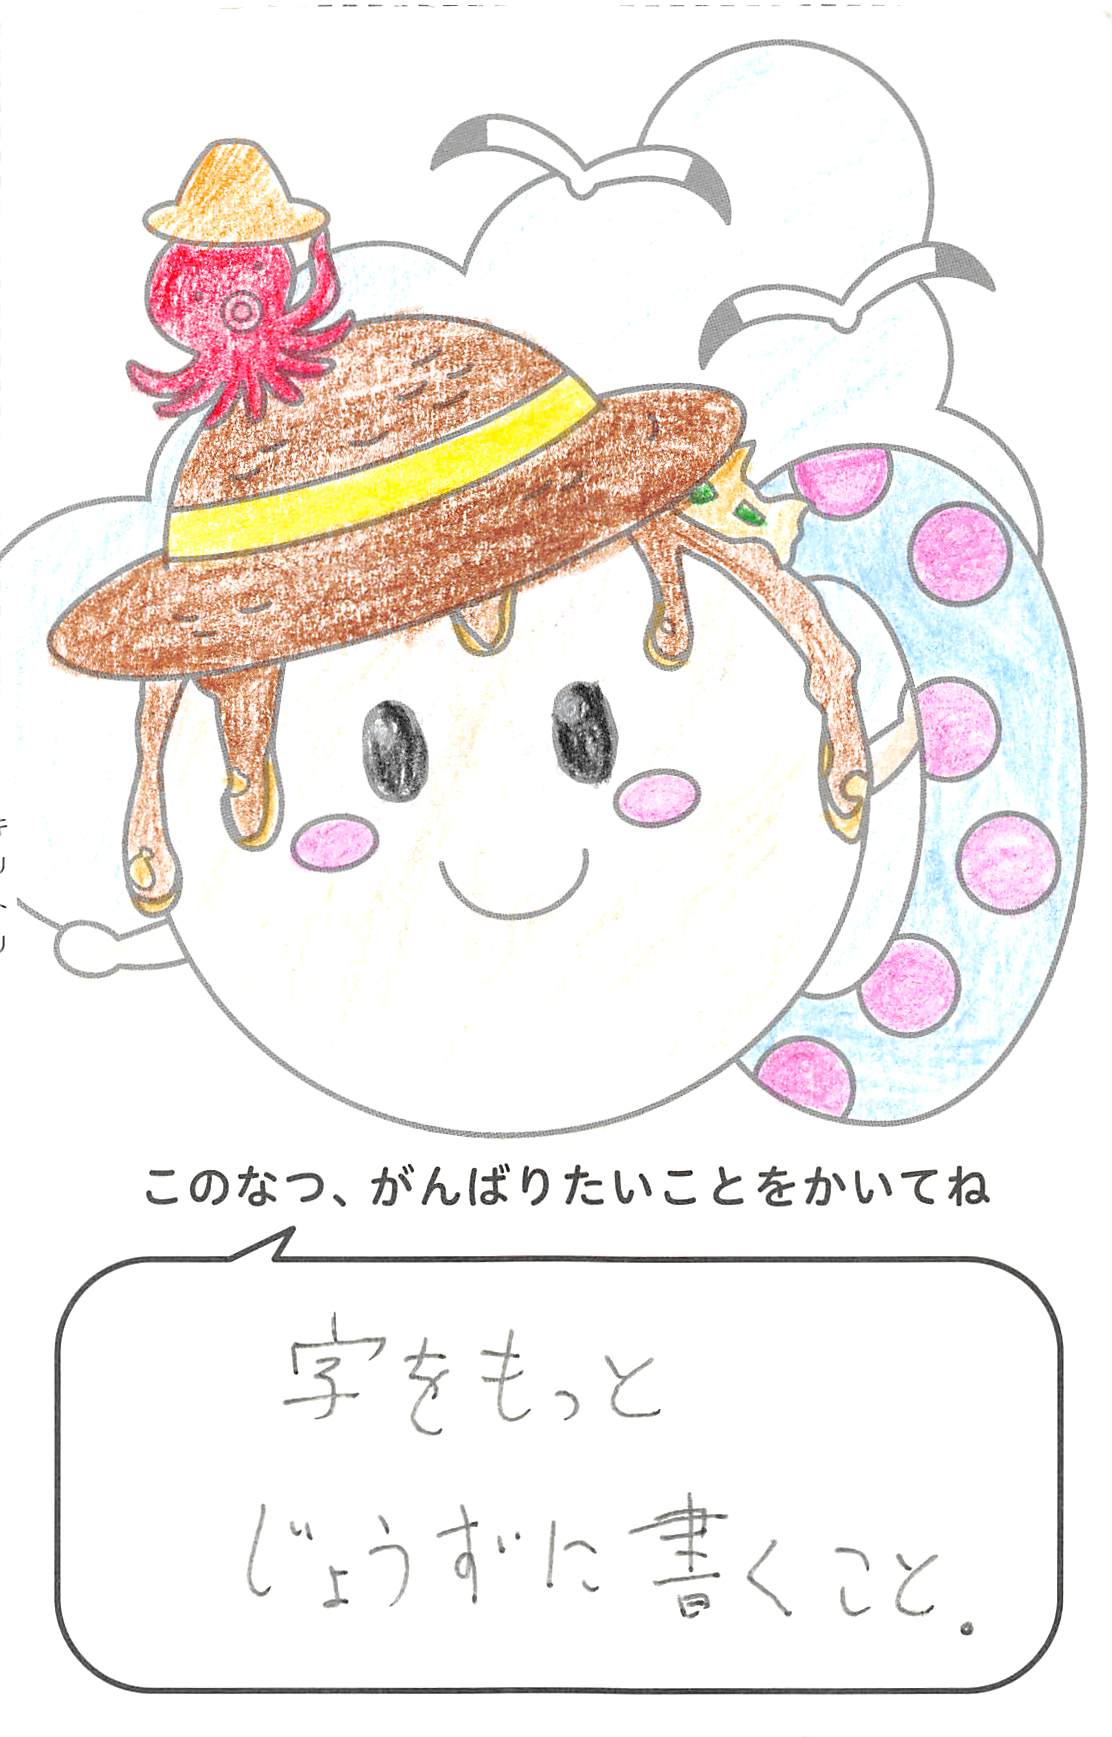 このなつ、がんばりたいことをかいてね
字をもっと
じょうずに書くこと.
キリトリ